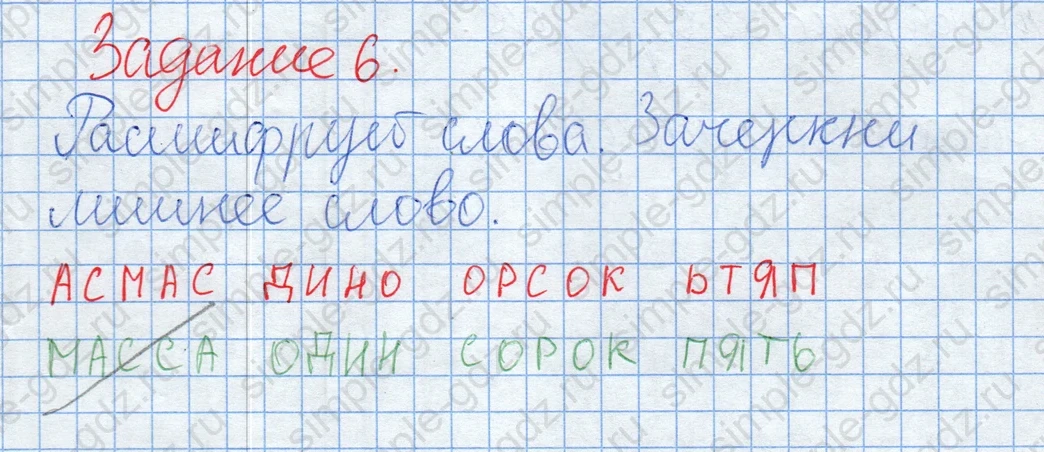 Задание 6.
Расшифруй слова. Зачеркни
лишнее слово.
АСМАС ДИНО ОРСОК ЬТЯП
МАССА ОДИН СОРОК ПЯТЬ